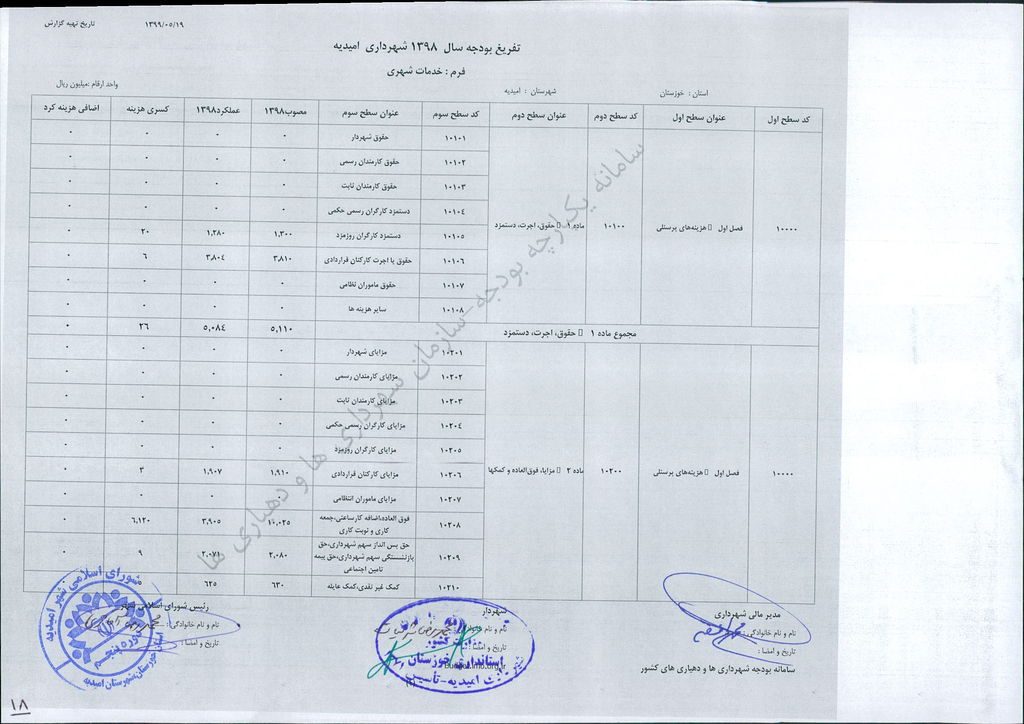 تاریخ تهیه گزارش ۱۳۹۹/۰۵/۱۹
تفریغ بودجه سال ۱۳۹۸ شهرداری امیدیه
فرم : خدمات شهری
استان : خوزستان شهرستان : امیدیه واحد ارقام :میلیون ریال
کد سطح اول عنوان سطح اول کد سطح دوم عنوان سطح دوم کد سطح سوم عنوان سطح سوم مصوب۱۳۹۸ عملکرد۱۳۹۸ کسری هزینه اضافی هزینه کرد
۱۰۱۰۱ حقوق شهردار ۰ ۰ ۰ ۰
۱۰۱۰۲ حقوق کارمندان رسمی ۰ ۰ ۰ ۰
۱۰۱۰۳ حقوق کارمندان ثابت ۰ ۰ ۰ ۰
۱۰۱۰۴ دستمزد کارگران رسمی حکمی ۰ ۰ ۰ ۰
۱۰۰۰۰ فصل اول هزینه‌های پرسنلی ۱۰۱۰۰ ماده ۱ حقوق، اجرت، دستمزد
۱۰۱۰۵ دستمزد کارگران روزمزد ۱,۳۰۰ ۱,۲۸۰ ۲۰ ۰
۱۰۱۰۶ حقوق یا اجرت کارکنان قراردادی ۳,۸۱۰ ۳,۸۰۴ ۶ ۰
۱۰۱۰۷ حقوق ماموران نظامی ۰ ۰ ۰ ۰
۱۰۱۰۸ سایر هزینه ها ۰ ۰ ۰ ۰
مجموع ماده ۱ حقوق، اجرت، دستمزد ۵,۱۱۰ ۵,۰۸۴ ۲۶ ۰
۱۰۲۰۱ مزایای شهردار ۰ ۰ ۰ ۰
۱۰۲۰۲ مزایای کارمندان رسمی ۰ ۰ ۰ ۰
۱۰۲۰۳ مزایای کارمندان ثابت ۰ ۰ ۰ ۰
۱۰۲۰۴ مزایای کارگران رسمی حکمی ۰ ۰ ۰ ۰
۱۰۲۰۵ مزایای کارگران روزمزد ۰ ۰ ۰ ۰
۱۰۰۰۰ فصل اول هزینه‌های پرسنلی ۱۰۲۰۰ ماده ۲ مزایا، فوق‌العاده و کمکها
۱۰۲۰۶ مزایای کارکنان قراردادی ۱,۹۱۰ ۱,۹۰۷ ۳ ۰
۱۰۲۰۷ مزایای ماموران انتظامی ۰ ۰ ۰ ۰
۱۰۲۰۸ فوق العاده،اضافه کارساعتی،جمعه
کاری و نوبت کاری ۱۰,۰۲۵ ۳,۹۰۵ ۶,۱۲۰ ۰
۱۰۲۰۹ حق پس انداز سهم شهرداری،حق
بازنشستگی سهم شهرداری،حق بیمه
تامین اجتماعی ۲,۰۸۰ ۲,۰۷۱ ۹ ۰
۱۰۲۱۰ کمک غیر نقدی،کمک عایله ۶۳۰ ۶۲۵
سامانه یکپارچه بودجه-سازمان شهرداری ها و دهیاری ها
مدیر مالی شهرداری
نام و نام خانوادگی :
تاریخ و امضا :
شهردار
نام و نام خانوادگی :
تاریخ و امضا :
رئیس شورای اسلامی شهر
نام و نام خانوادگی :
تاریخ و امضا :
سامانه بودجه شهرداری ها و دهیاری های کشور
budget.imo.org.ir
کشور
استانداری خوزستان
امیدیه-تأسیس
شورای اسلامی شهر امیدیه
دوره پنجم
استان خوزستان،شهرستان امیدیه
۱۸